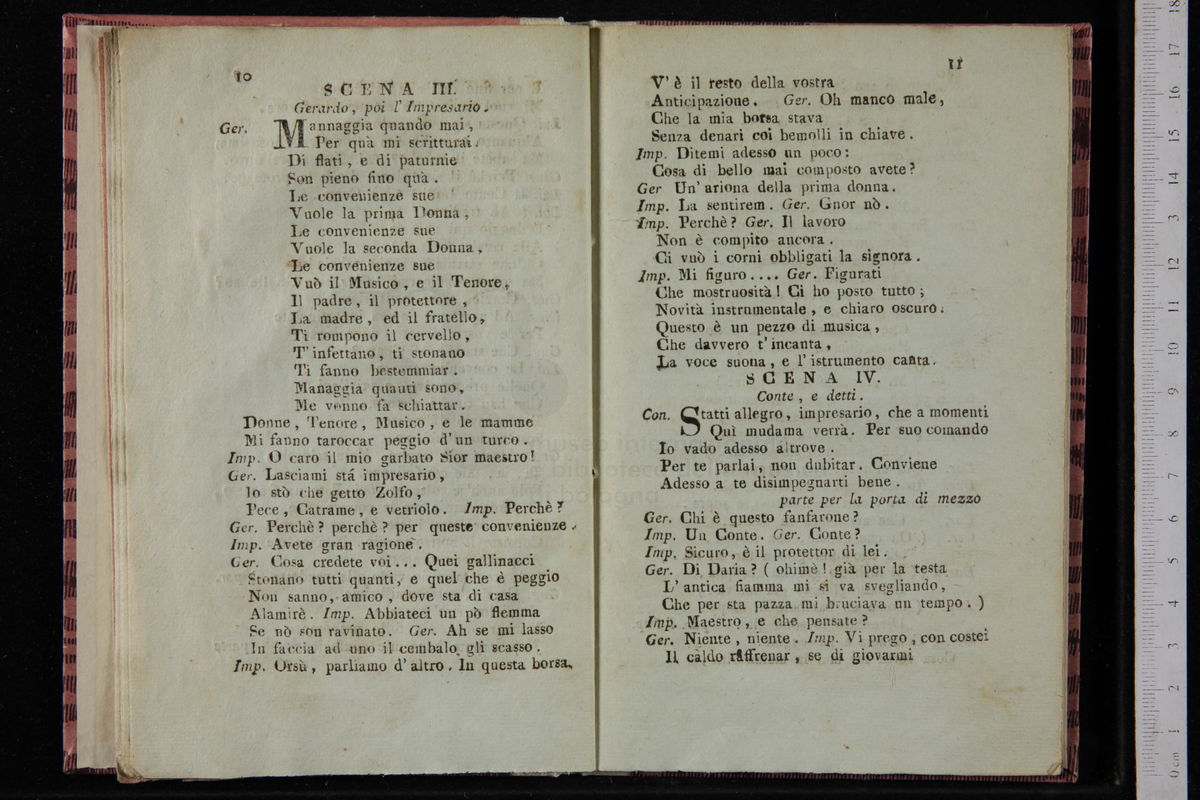 10
SCENA III.
Gerardo, poi l' Impresario.
Ger. Mannaggia quando mai,
Per quà mi scritturai.
Di flati, e di paturnie
Son pieno fino quà.
Le convenienze sue
Vuole la prima Donna,
Le convenienze sue
Vuole la seconda Donna,
Le convenienze sue
Vuò il Musico, e il Tenore,
Il padre, il protettore,
La madre, ed il fratello,
Ti rompono il cervello,
T' infettano, ti stonano
Ti fanno bestemmiar.
Managgia quanti sono,
Me venno fa schiattar.
Donne, Tenore, Musico, e le mamme
Mi fanno taroccar peggio d' un turco.
Imp. O caro il mio garbato Sior maestro!
Ger. Lasciami stá impresario,
Io stò che getto Zolfo,
Pece, Catrame, e vetriolo. Imp. Perchè?
Ger. Perchè? perchè? per queste convenienze.
Imp. Avete gran ragione.
Ger. Cosa credete voi... Quei gallinacci
Stonano tutti quanti, e quel che è peggio
Non sanno, amico, dove sta di casa
Alamirè. Imp. Abbiateci un pò flemma
Se nò son ravinato. Ger. Ah se mi lasso
In faccia ad uno il cembalo gli scasso.
Imp. Orsù, parliamo d' altro. In questa borsa,
11
V' è il resto della vostra
Anticipazione. Ger. Oh manco male,
Che la mia borsa stava
Senza denari coi bemolli in chiave.
Imp. Ditemi adesso un poco:
Cosa di bello mai composto avete?
Ger Un' ariona della prima donna.
Imp. La sentirem. Ger. Gnor nò.
Imp. Perchè? Ger. Il lavoro
Non è compito ancora.
Ci vuò i corni obbligati la signora.
Imp. Mi figuro.... Ger. Figurati
Che mostruosità! Ci ho posto tutto;
Novità instrumentale, e chiaro oscuro.
Questo è un pezzo di musica,
Che davvero t' incanta,
La voce suona, e l' istrumento canta.
SCENA IV.
Conte, e detti.
Con. Statti allegro, impresario, che a momenti
Quì mudama verrà. Per suo comando
Io vado adesso altrove.
Per te parlai, non dubitar. Conviene
Adesso a te disimpegnarti bene.
parte per la porta di mezzo
Ger. Chi è questo fanfarone?
Imp. Un Conte. Ger. Conte?
Imp. Sicuro, è il protettor di lei.
Ger. Di Daria? (ohimè! già per la testa
L' antica fiamma mi si va svegliando,
Che per sta pazza mi bruciava un tempo.)
Imp. Maestro, e che pensate?
Ger. Niente, niente. Imp. Vi prego, con costei
Il caldo raffrenar, se di giovarmi
0 cm 1 2 3 4 5 6 7 8 9 10 11 12 13 14 15 16 17 18